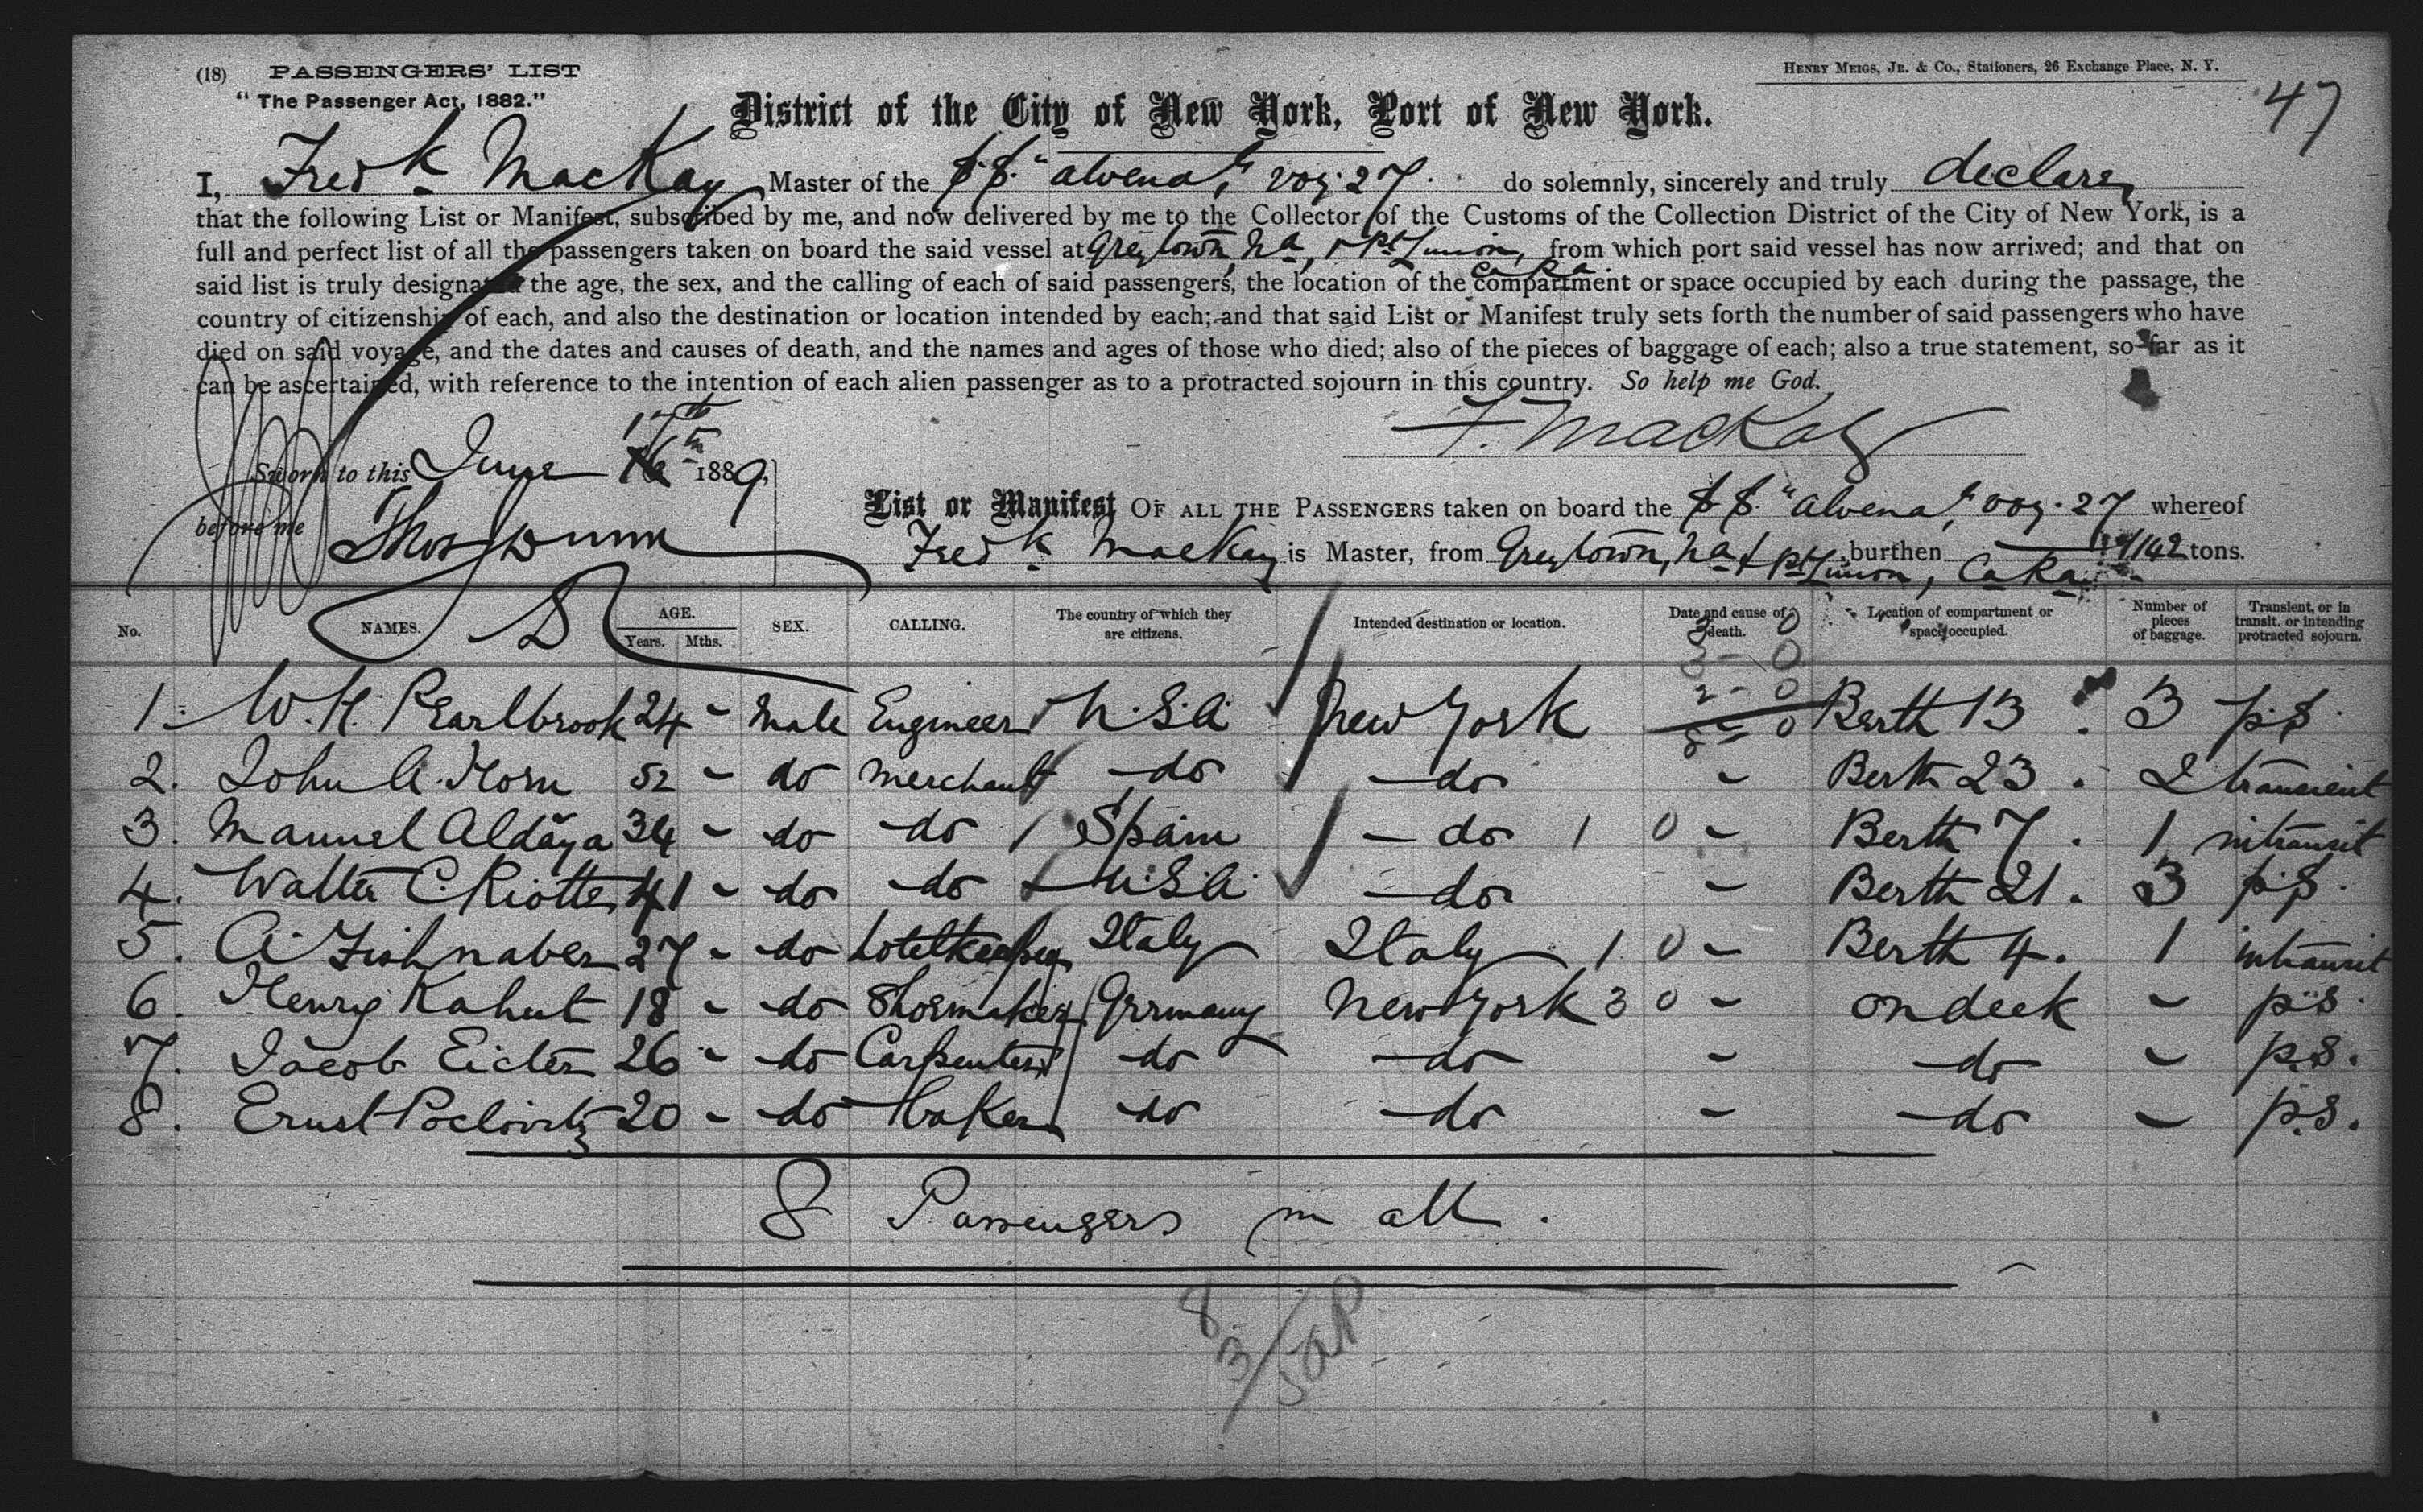 (18) PASSENGERS' LIST
HENRY MEIGS, JR. & CO., Stationers, 26 Exchange Place, N. Y.
"The Passenger Act, 1882."
47
District of the City of New York, Port of New York.
I, Fredk. MacKay Master of the S.S. "Alvena," voy. 27. do solemnly, sincerely and truly declare,
that the following List or Manifest, subscribed by me, and now delivered by me to the Collector of the Customs of the Collection District of the City of New York, is a
full and perfect list of all the passengers taken on board the said vessel at Greytown, Na, & Pt Limon, from which port said vessel has now arrived; and that on
Ca Ra
said list is truly designated the age, the sex, and the calling of each of said passengers, the location of the compartment or space occupied by each during the passage, the
country of citizenship of each, and also the destination or location intended by each; and that said List or Manifest truly sets forth the number of said passengers who have
died on said voyage, and the dates and causes of death, and the names and ages of those who died; also of the pieces of baggage of each; also a true statement, so far as it
can be ascertained, with reference to the intention of each alien passenger as to a protracted sojourn in this country. So help me God.
F. MacKay
17th
Sworn to this June 16th 1889,
before me Thos Dunn
List or Manifest OF ALL THE PASSENGERS taken on board the S.S. "Alvena," voy. 27 whereof
Fredk. MacKay is Master, from Greytown, Na & Pt Limon, Ca Ra burthen 1142 tons.
No. NAMES. AGE. Years. Mths. SEX. CALLING. The country of which they are citizens. Intended destination or location. Date and cause of death. Location of compartment or space occupied. Number of pieces of baggage. Transient, or in transit, or intending protracted sojourn.
3 0
3 - 0
2 - 0
8 - 0
1. W. H. Pearlbrook 24 - Male Engineer U.S.A. New York Berth 13 . 3 p.s.
2. John A. Horn 52 - do Merchant do do - Berth 23 . 2 transient
3. Manuel Aldaya 34 - do do Spain do 1 0 - Berth 7 . 1 intransit
4. Walter C. Riotte 41 - do do U.S.A. do - Berth 21 . 3 p.s.
5. A. Fishnaber 27 - do hotelkeeper Italy Italy 1 0 - Berth 4 . 1 intransit
6. Henry Kahut 18 - do Shoemaker Germany New York 3 0 - on deck - p.s.
7. Jacob Eicter 26 - do Carpenter do do - do - p.s.
8. Ernst 20 - do Baker do do - do - p.s.
8 Passengers in all.
8
3/5aP